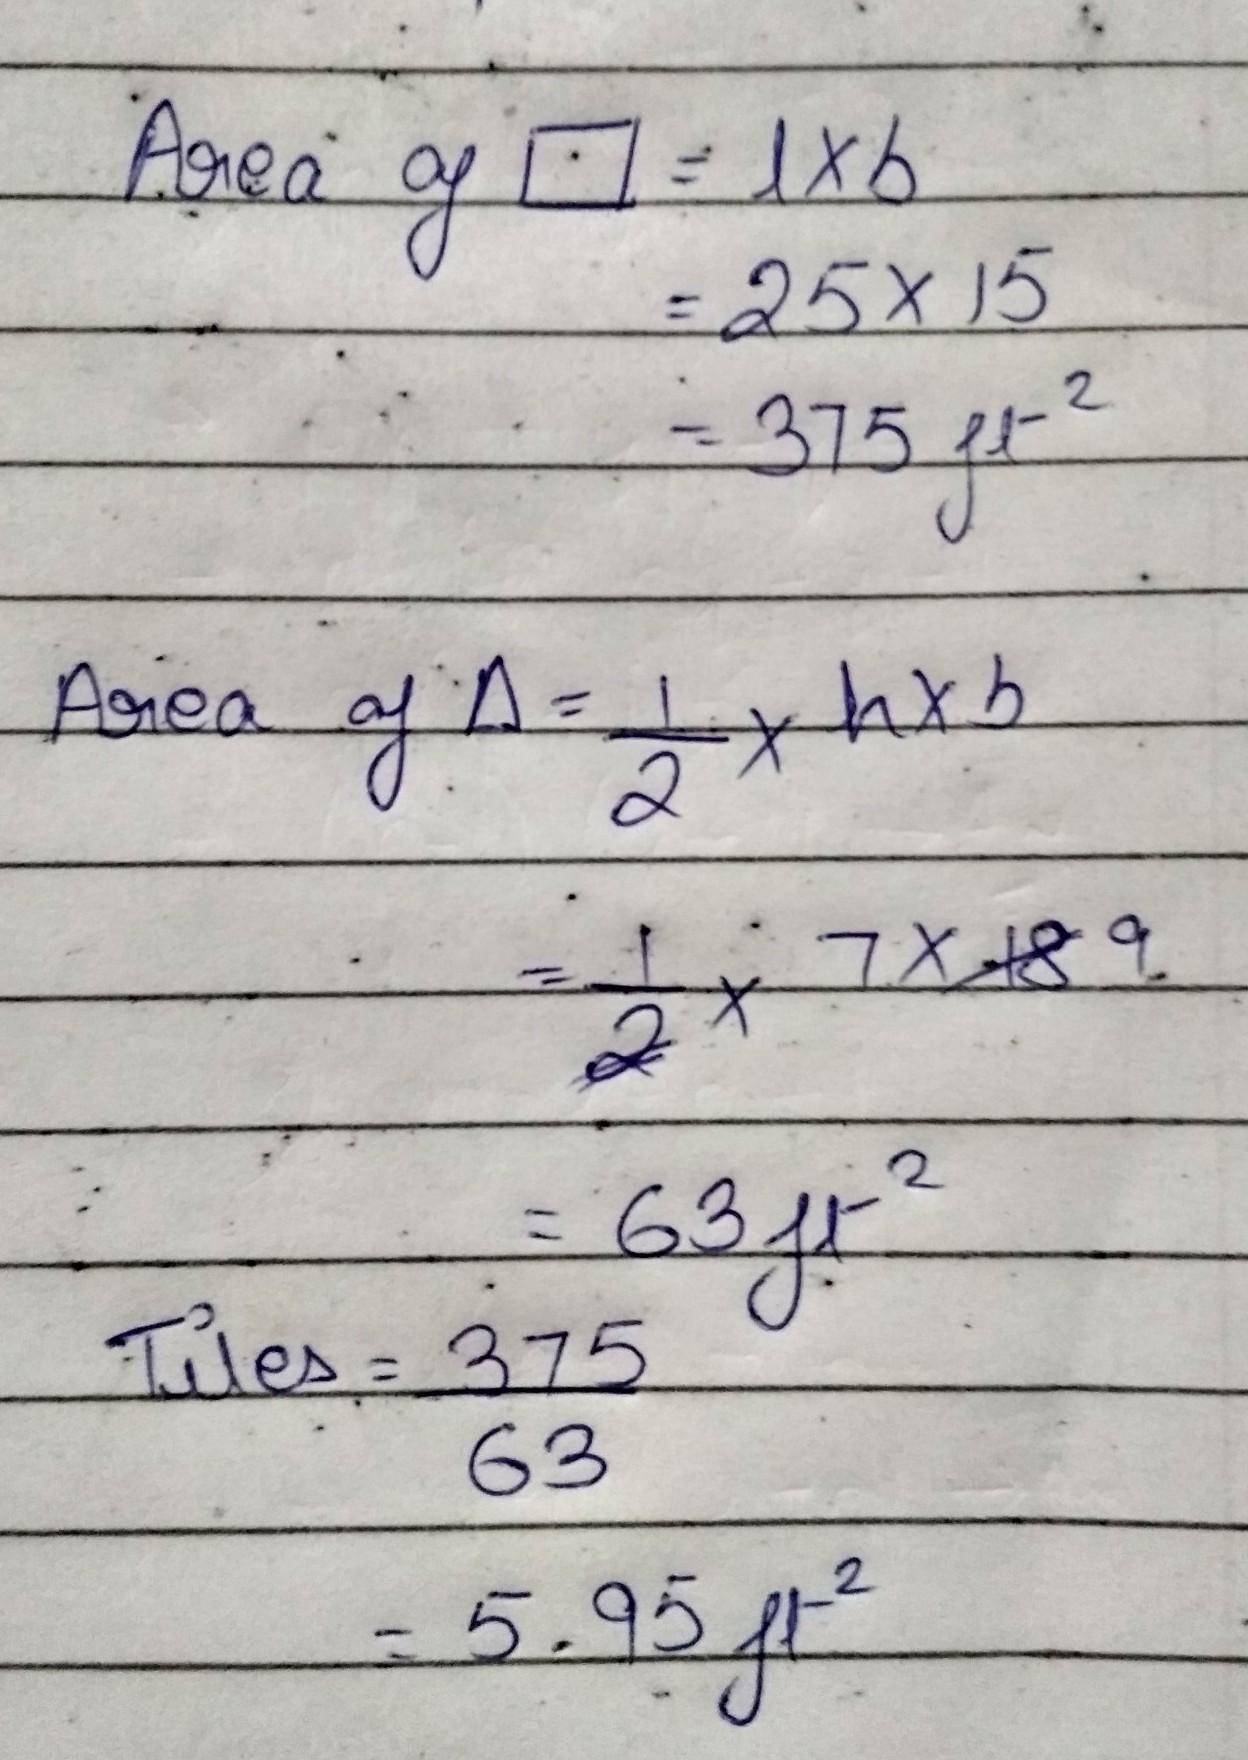 Area of □ = l×b
= 25×15
= 375 ft²
Area of Δ = 1/2 × h×b
= 1/2 × 7×18 9
= 63 ft²
Tiles = 375/63
= 5.95 ft²